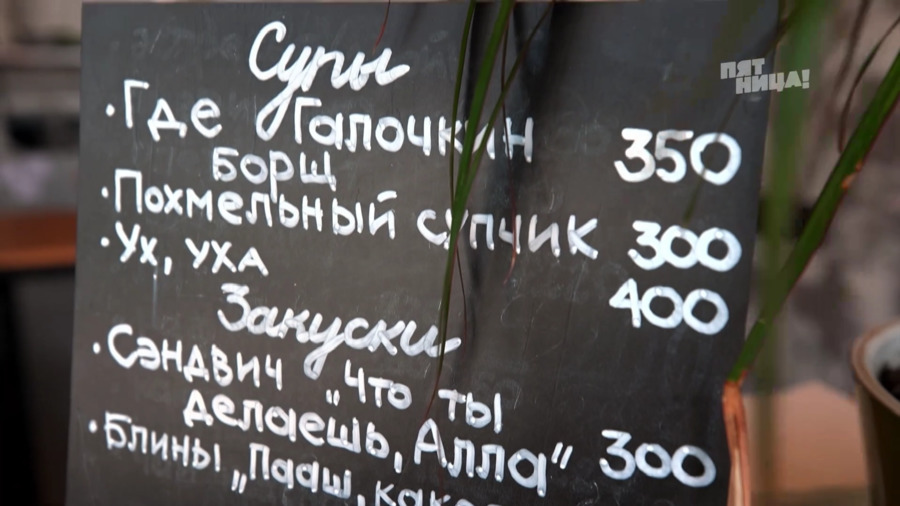 Супы
ПЯТ
НИЦА!
·Где Галочкин 350
борщ
·Похмельный супчик 300
·Ух, уха 400
Закуски
·Сэндвич „Что ты
делаешь, Алла“ 300
·Блины „Пааш,